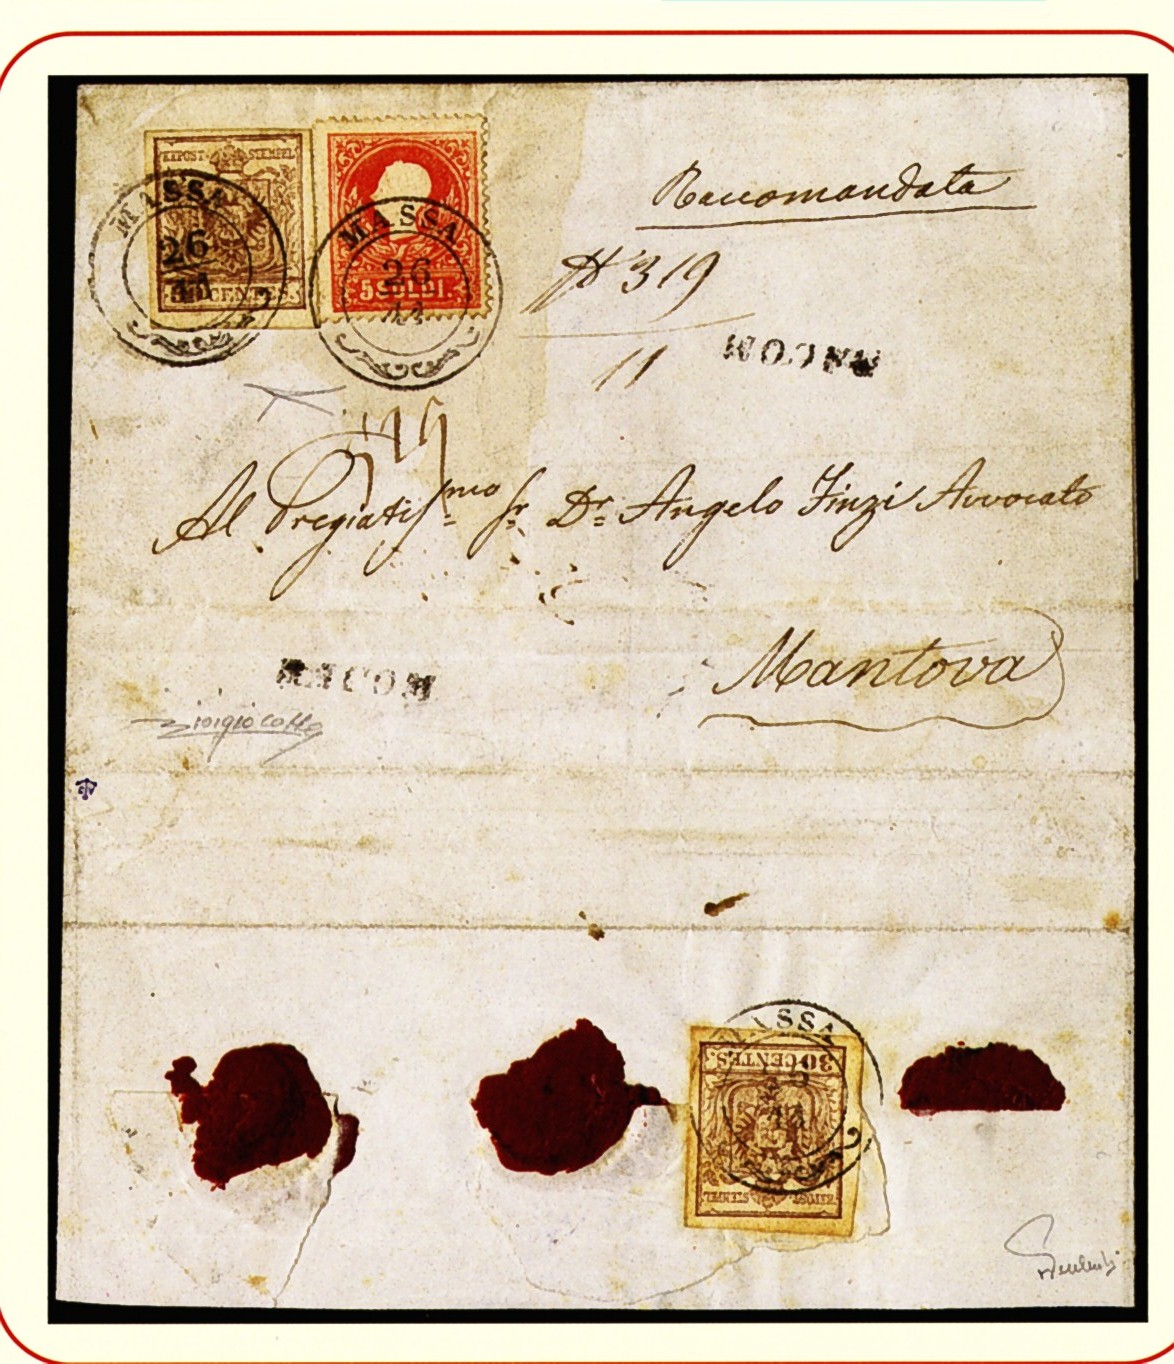 KKPOST-STEMPEL
30 CENTES.
MASSA
26
11
5 SOLDI.
MASSA
26
11
Raccomandata
N 319
11
RACCOM
Al Pregiatis.mo Sr. Dr. Angelo Finzi Avvocato
Mantova
RACCOM
giorgio colla
MASSA
11
30 CENTES.
STEMPEL